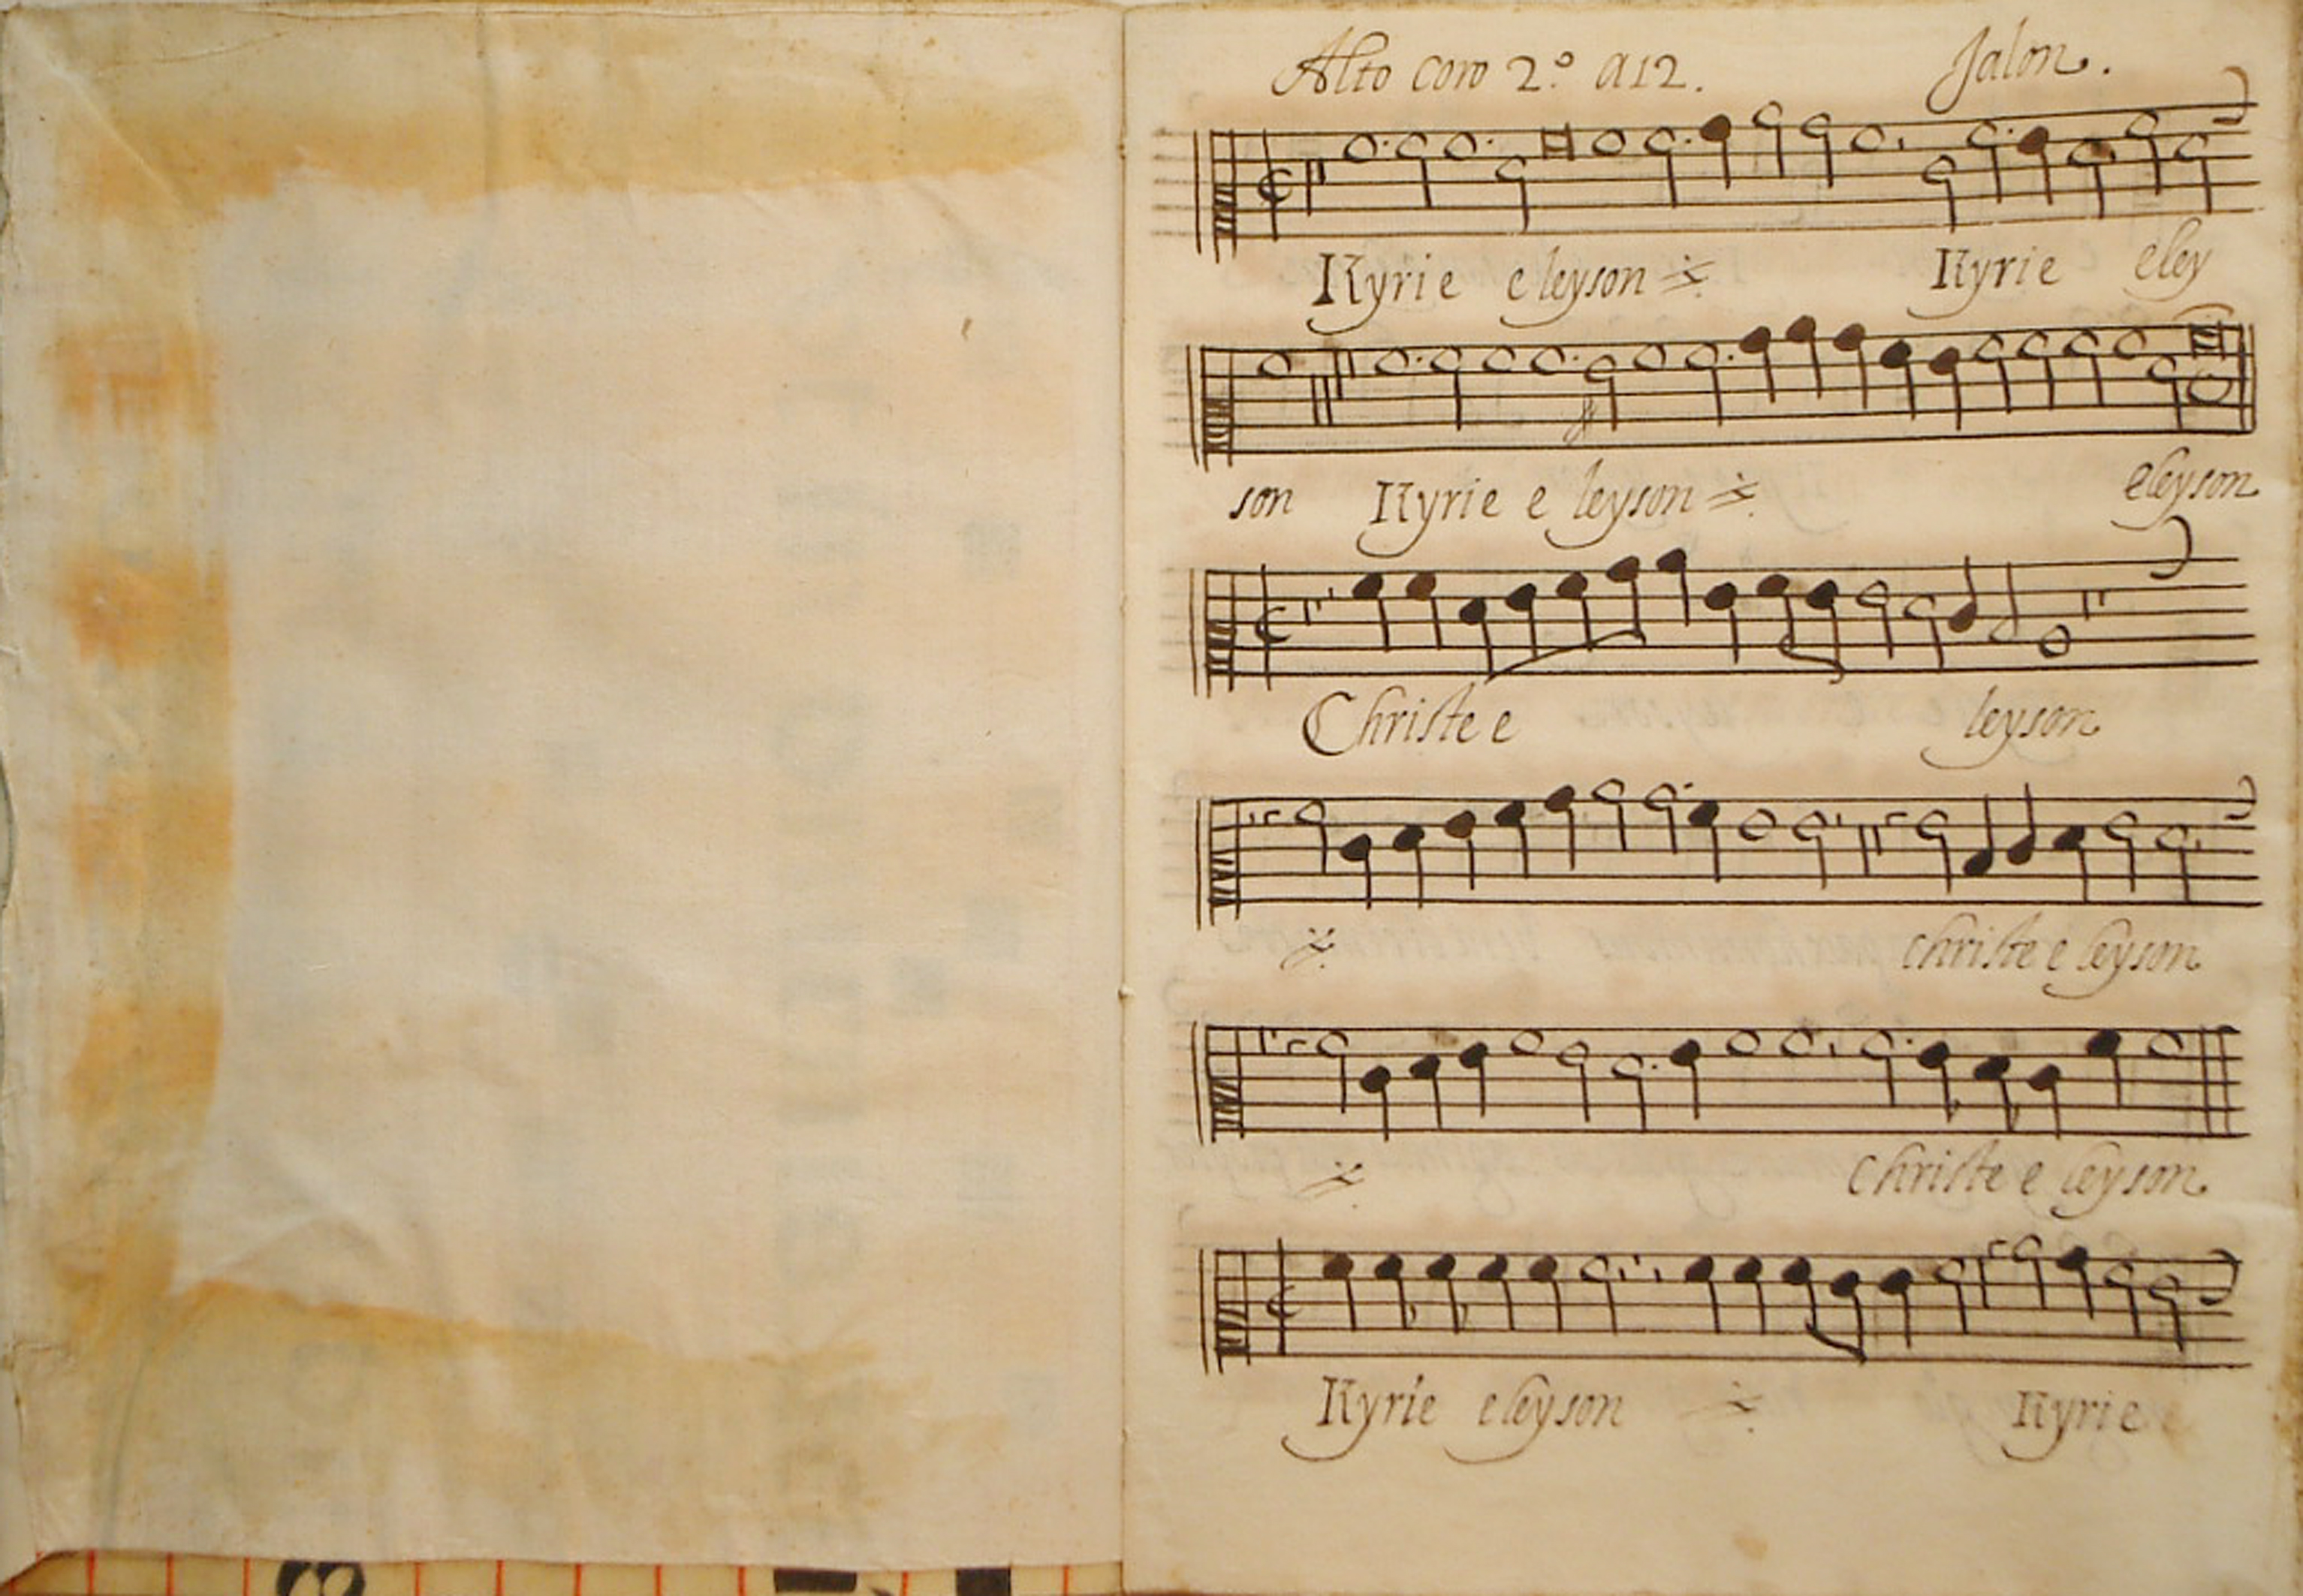 Alto coro 2.º a 12. Jalon.
Kyrie eleyson Kyrie eley
son Kyrie eleyson eleyson
Christe e leyson
christe eleyson
Christe eleyson
Kyrie eleyson Kyrie e